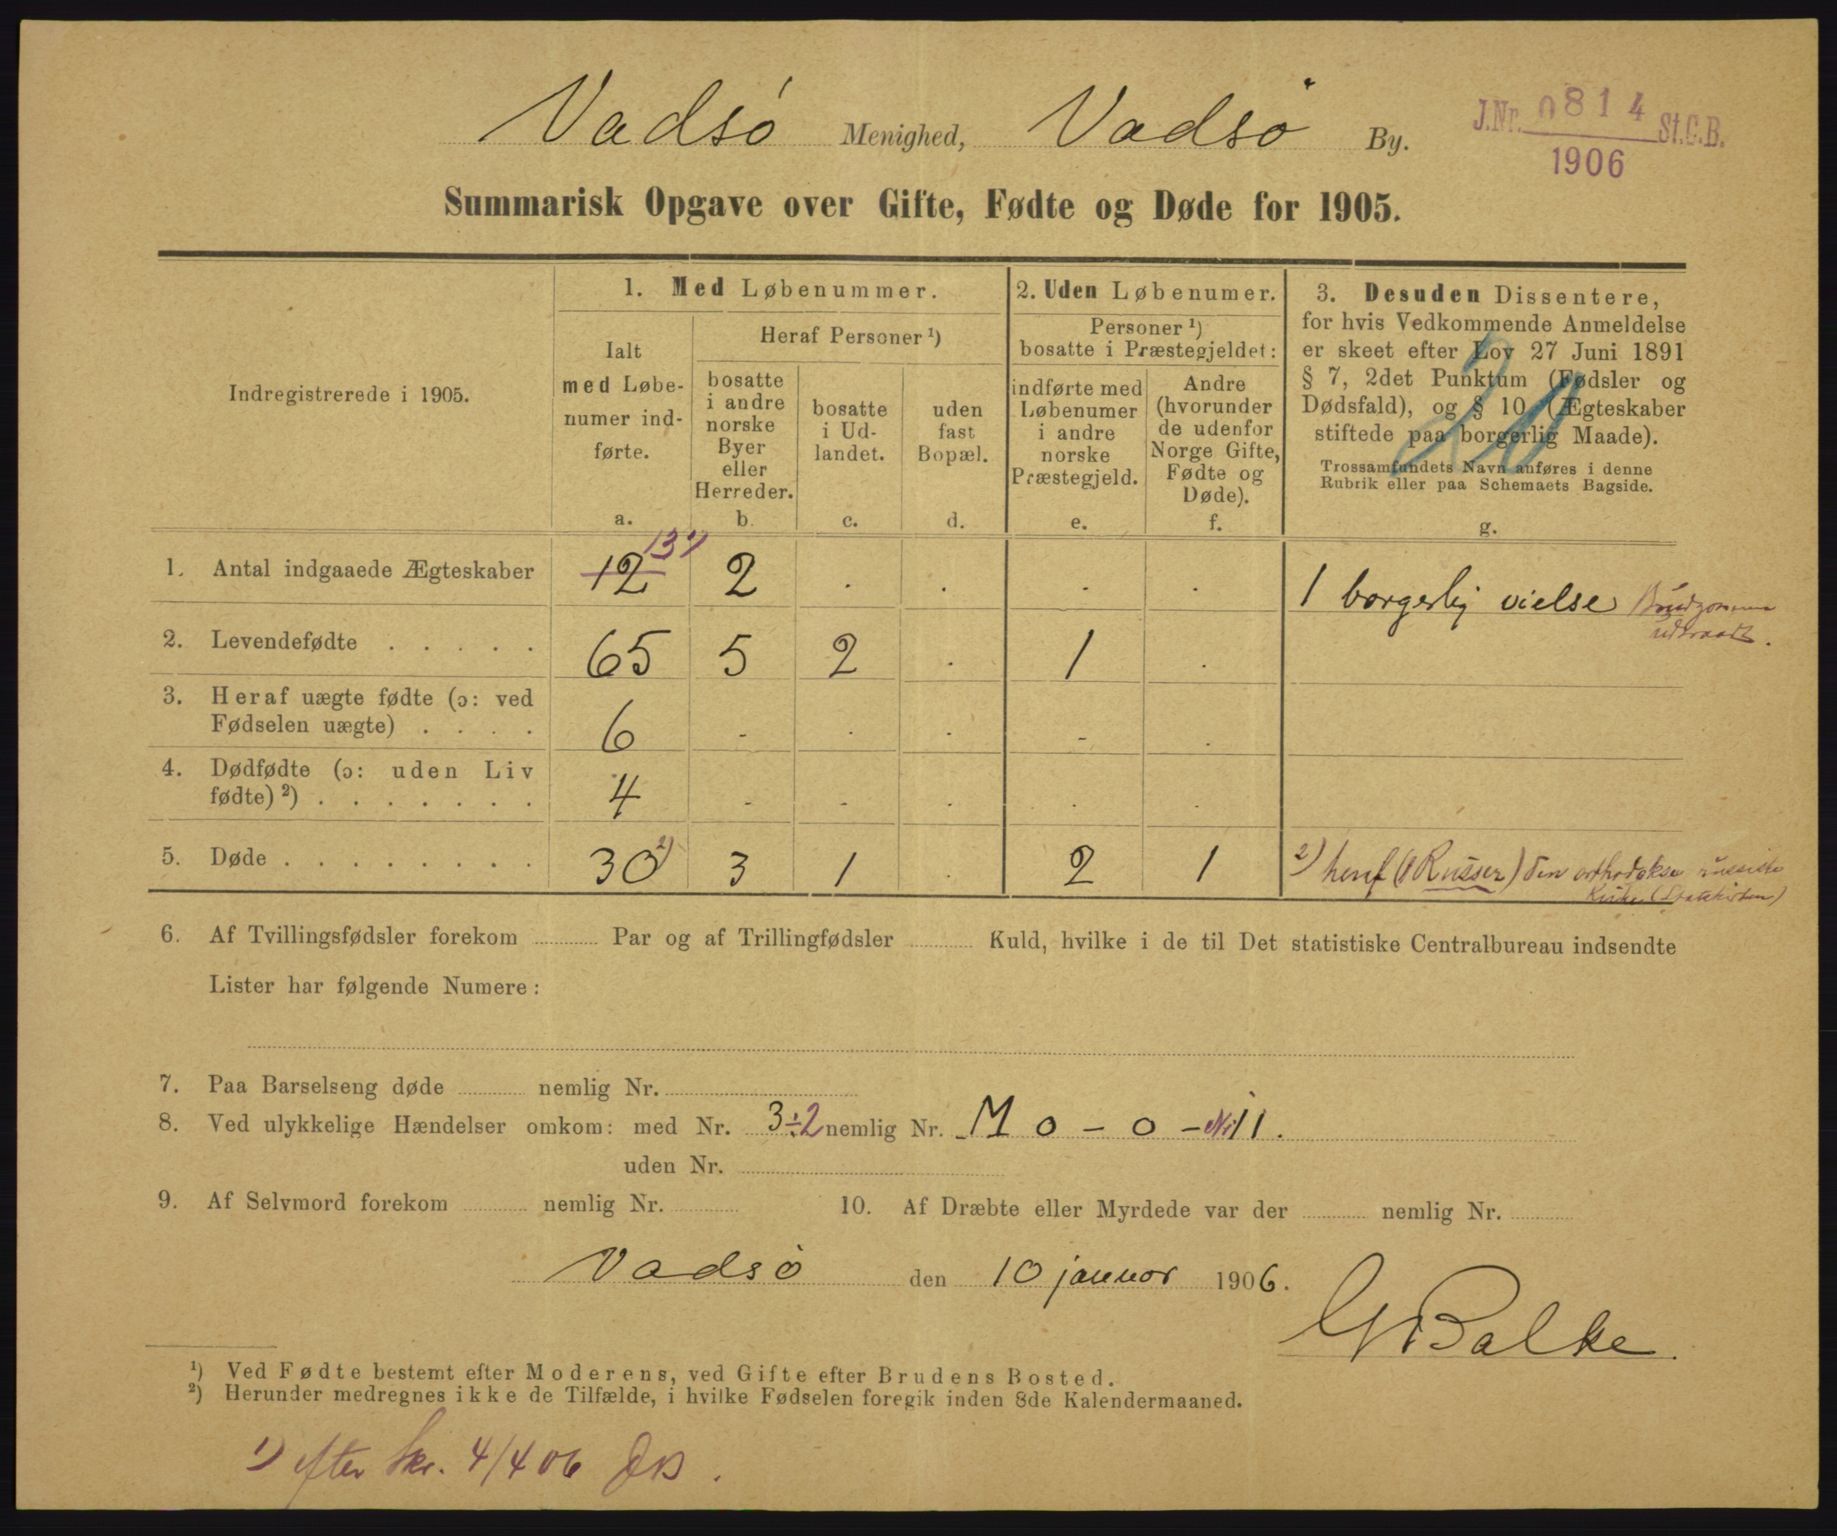 Vadsö Menighed, Vadsö By.
J.Nr. 0814 St.C.B.
1906
Summarisk Opgave over Gifte, Fødte og Døde for 1905.
Indregistrerede i 1905.
1. Med Løbenummer.
Ialt
med Løbe-
numer ind-
førte.
a.
Heraf Personer ¹)
bosatte
i andre
norske
Byer
eller
Herreder.
b.
bosatte
i Ud-
landet.
c.
uden
fast
Bopæl.
d.
2. Uden Løbenumer.
Personer ¹)
bosatte i Præstegjeldet:
indførte med
Løbenumer
i andre
norske
Præstegjeld.
e.
Andre
(hvorunder
de udenfor
Norge Gifte,
Fødte og
Døde).
f.
3. Desuden Dissentere,
for hvis Vedkommende Anmeldelse
er skeet efter Lov 27 Juni 1891
§ 7, 2det Punktum (Fødsler og
Dødsfald), og § 10 (Ægteskaber
stiftede paa borgerlig Maade).
Trossamfundets Navn anføres i denne
Rubrik eller paa Schemaets Bagside.
g.
20
1. Antal indgaaede Ægteskaber 12 13 ¹) 2 . . . . 1 borgerlig vielse Brudgommen
udtraadt.
2. Levendefødte . . . . . 65 5 2 . 1 .
3. Heraf uægte fødte (ɔ: ved
Fødselen uægte) . . . . 6 - . . - .
4. Dødfødte (ɔ: uden Liv
fødte) ²) . . . . . . . 4 - - . . .
5. Døde . . . . . . . . 30 ²) 3 1 . 2 1 ²) heraf (1 Russer) den orthodokse russiske
Kirke (Statskirken)
6. Af Tvillingsfødsler forekom Par og af Trillingfødsler Kuld, hvilke i de til Det statistiske Centralbureau indsendte
Lister har følgende Numere:
7. Paa Barselseng døde nemlig Nr.
8. Ved ulykkelige Hændelser omkom: med Nr. 3 ÷ 2 nemlig Nr. M o - o - Nr 11.
uden Nr.
9. Af Selvmord forekom nemlig Nr. 10. Af Dræbte eller Myrdede var der nemlig Nr.
Vadsö den 10 januar 1906.
G Balke.
¹) Ved Fødte bestemt efter Moderens, ved Gifte efter Brudens Bosted.
²) Herunder medregnes ikke de Tilfælde, i hvilke Fødselen foregik inden 8de Kalendermaaned.
¹) efter skr. 4/4 06